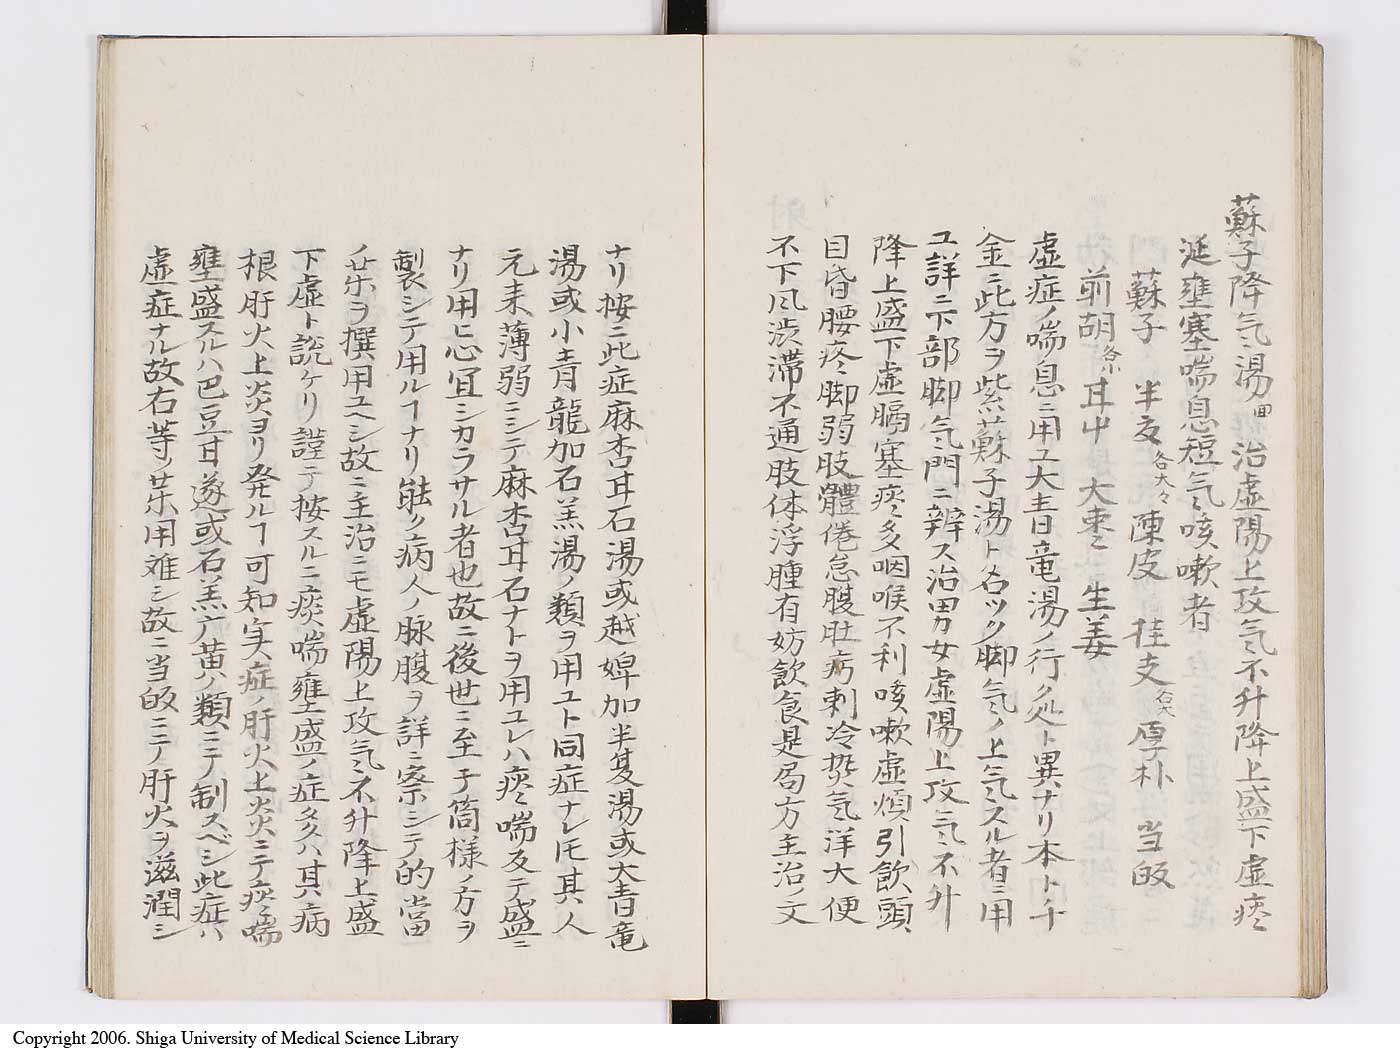 蘇子降气湯 回 治虚陽上攻气不升降上盛下虚痰
涎壅塞喘息短气咳嗽者
蘇子 半夏各大 陳皮 桂支各大 厚朴 当皈
前胡各小 耳中 大枣 生姜
虚症ノ喘息ニ用ユ大青竜湯ノ行ク処ト異ナリ本ト千
金ニ此方ヲ紫蘇子湯ト名ツク脚气ノ上气スル者ニ用
ユ詳ニ下部脚气門ニ辨ス治男女虚陽上攻气不升
降上盛下虚膈塞痰多咽喉不利咳嗽虚煩引飲頭
目昏腰疼脚弱肢體倦怠腹肚㽲刺冷熱气洋大便
不下风渋滞不通肢体浮腫有妨飲食是局方主治ノ文
ナリ按ニ此症麻杏耳石湯或越婢加半夏湯或大青竜
湯或小青龍加石羔湯ノ類ヲ用ユト同症ナレ𪜈其人
元来薄弱ニシテ麻杏耳石ナトヲ用ユレハ痰喘反テ盛ニ
ナリ用ヒ心宜シカラサル者也故ニ後世ニ至テ箇様ノ方ヲ
製シテ用ルヿナリ能ク病人ノ脉腹ヲ詳ニ察シテ的當
ノ茱ヲ撰用ユヘシ故ニ主治ニモ虚陽上攻气不升降上盛
下虚ト説ケリ謹テ按スルニ痰喘壅盛ノ症多クハ其病
根肝火上炎ヨリ発ルヿ可知実症ノ肝火上炎ニテ痰喘
壅盛スルハ巴豆甘遂或石羔广黄ノ類ニテ制スベシ此症ハ
虚症ナル故右等ノ茱用难シ故ニ当皈ニテ肝火ヲ滋潤シ
Copyright 2006. Shiga University of Medical Science Library